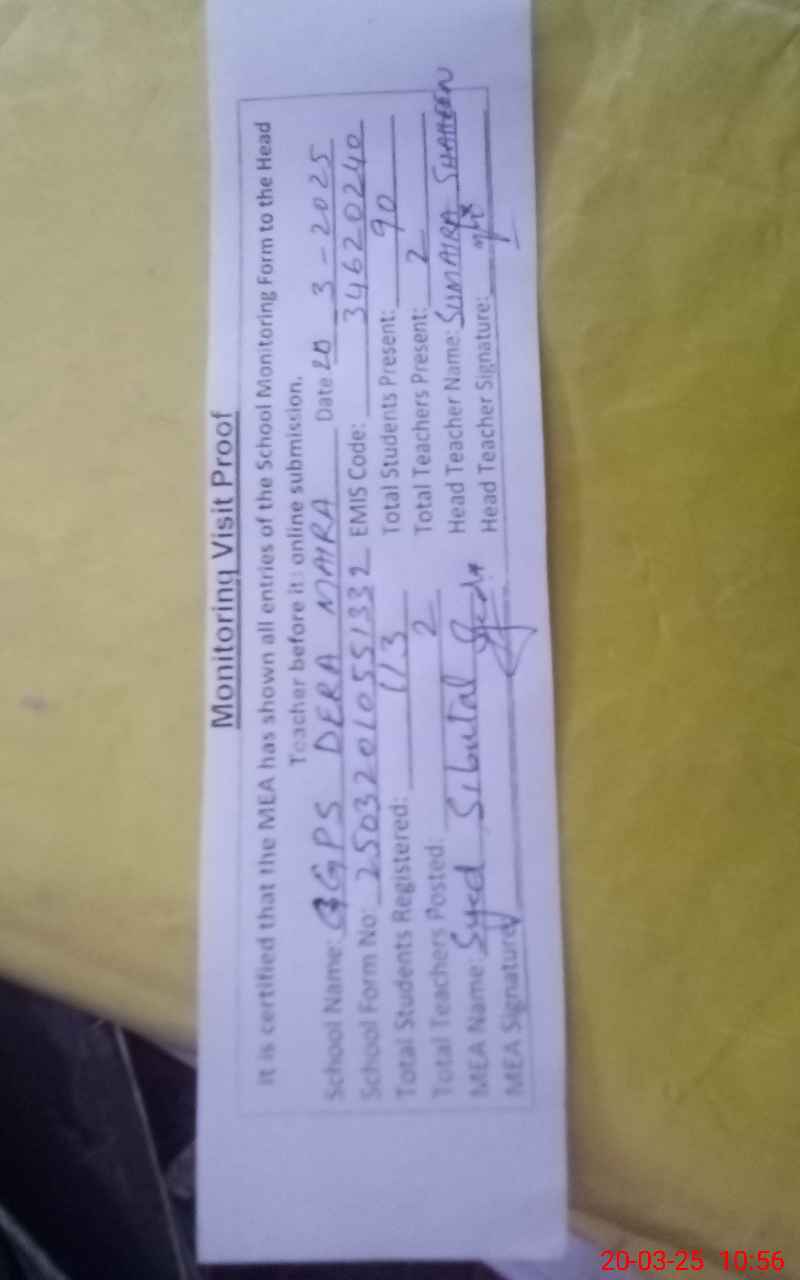 Monitoring Visit Proof
It is certified that the MEA has shown all entries of the School Monitoring Form to the Head
Teacher before its online submission.
School Name: GGPS DERA MAIRA Date 20 3-2025
School Form No: 25032010551332 EMIS Code: 34620240
Total Students Registered: 113 Total Students Present: 90
Total Teachers Posted: 2 Total Teachers Present: 2
MEA Name: Syed Sibutal Head Teacher Name: SUMAIRA SHAHEEN
MEA Signature Head Teacher Signature:
20-03-25 10:56